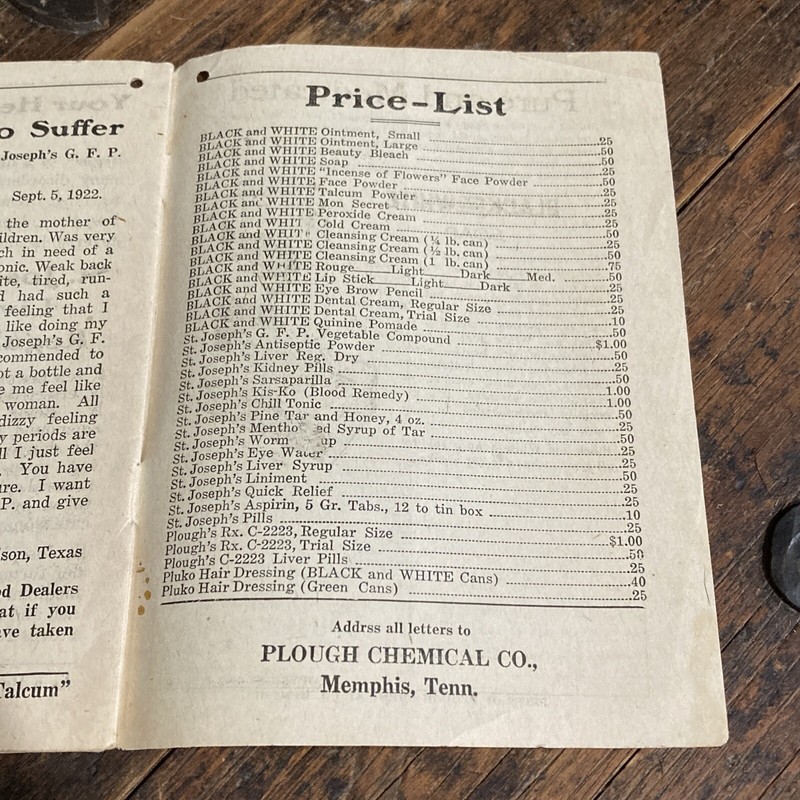 o Suffer
Joseph's G. F. P.
Sept. 5, 1922.
the mother of
ildren. Was very
ch in need of a
onic. Weak back
ite, tired, run-
d had such a
feeling that I
like doing my
Joseph's G. F.
commended to
ot a bottle and
e me feel like
woman. All
dizzy feeling
y periods are
ll I just feel
. You have
ure. I want
P. and give
son, Texas
od Dealers
at if you
ave taken
Talcum"
Price-List
BLACK and WHITE Ointment, Small .25
BLACK and WHITE Ointment, Large .50
BLACK and WHITE Beauty Bleach .50
BLACK and WHITE Soap .25
BLACK and WHITE "Incense of Flowers" Face Powder .50
BLACK and WHITE Face Powder .25
BLACK and WHITE Talcum Powder .25
BLACK and WHITE Mon Secret .25
BLACK and WHITE Peroxide Cream .50
BLACK and WHITE Cold Cream .25
BLACK and WHITE Cleansing Cream (¼ lb. can) .25
BLACK and WHITE Cleansing Cream (½ lb. can) .50
BLACK and WHITE Cleansing Cream (1 lb. can) .75
BLACK and WHITE Rouge Light Dark Med. .50
BLACK and WHITE Lip Stick Light Dark .25
BLACK and WHITE Eye Brow Pencil .25
BLACK and WHITE Dental Cream, Regular Size .25
BLACK and WHITE Dental Cream, Trial Size .10
BLACK and WHITE Quinine Pomade .50
St. Joseph's G. F. P. Vegetable Compound $1.00
St. Joseph's Antiseptic Powder .50
St. Joseph's Liver Reg. Dry .25
St. Joseph's Kidney Pills .50
St. Joseph's Sarsaparilla 1.00
St. Joseph's Kis-Ko (Blood Remedy) 1.00
St. Joseph's Chill Tonic .50
St. Joseph's Pine Tar and Honey, 4 oz. .25
St. Joseph's Mentho ed Syrup of Tar .50
St. Joseph's Worm up .25
St. Joseph's Eye Water .25
St. Joseph's Liver Syrup .50
St. Joseph's Liniment .25
St. Joseph's Quick Relief .25
St. Joseph's Aspirin, 5 Gr. Tabs., 12 to tin box .10
St. Joseph's Pills .25
Plough's Rx. C-2223, Regular Size $1.00
Plough's Rx. C-2223, Trial Size .50
Plough's C-2223 Liver Pills .25
Pluko Hair Dressing (BLACK and WHITE Cans) .40
Pluko Hair Dressing (Green Cans) .25
Addrss all letters to
PLOUGH CHEMICAL CO.,
Memphis, Tenn.